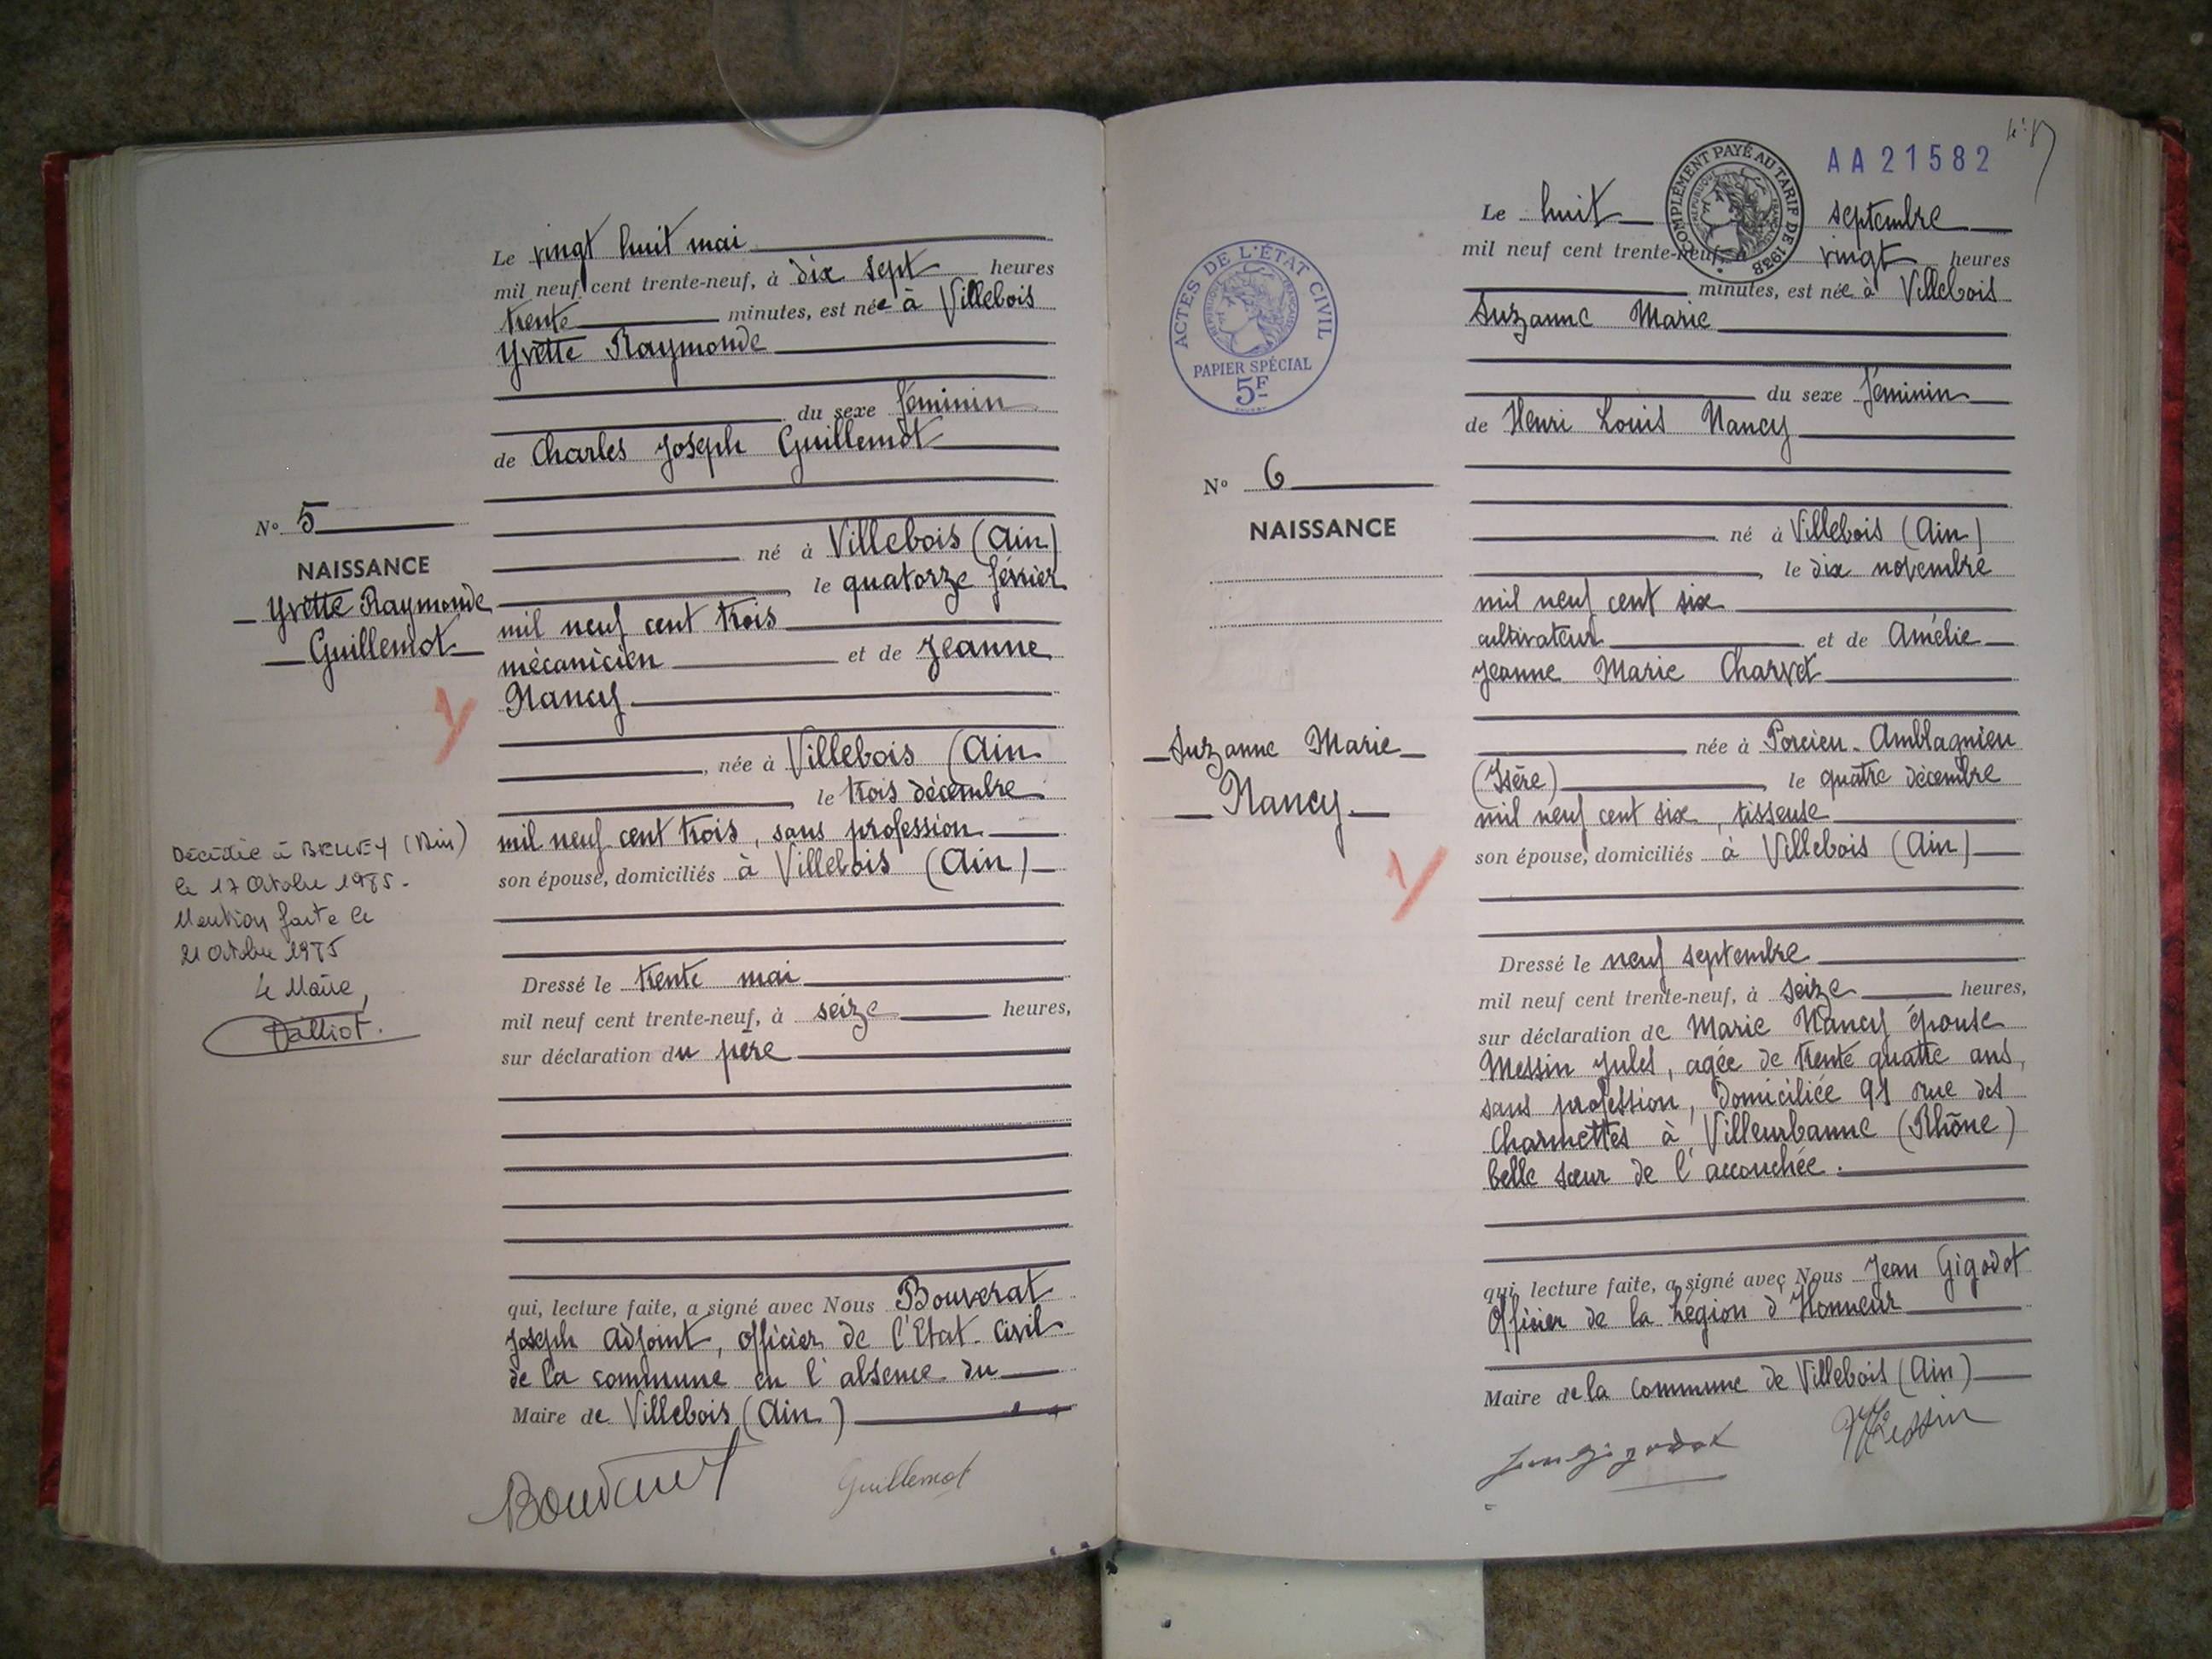 Le vingt huit mai
mil neuf cent trente-neuf, à dix sept heures
trente minutes, est née à Villebois
Yvette Raymonde
du sexe féminin
de Charles Joseph Guillemot
né à Villebois (Ain)
le quatorze février
mil neuf cent trois
mécanicien et de Jeanne
Nancy
, née à Villebois (Ain
, le trois décembre
mil neuf cent trois, sans profession
son épouse, domiciliés à Villebois (Ain)
Dressé le trente mai
mil neuf cent trente-neuf, à seize heures,
sur déclaration du père
qui, lecture faite, a signé avec Nous Bouverat
Joseph Adjoint, officier de l'Etat-Civil
de la commune en l'absence du
Maire de Villebois (Ain)
Guillemot
N° 5
NAISSANCE
Yvette Raymonde
Guillemot
Décédée à BELLEY (Ain)
le 17 Octobre 1985.
Mention faite le
21 Octobre 1985
Le Maire,
AA21582
Le huit septembre
mil neuf cent trente-neuf, à vingt heures
minutes, est née à Villebois
Suzanne Marie
du sexe féminin
de Henri Louis Nancy
né à Villebois (Ain)
, le dix novembre
mil neuf cent six
cultivateur et de Amélie
Jeanne Marie Charvet
née à Porcieu-Amblagnieu
(Isère) , le quatre décembre
mil neuf cent six, tisseuse
son épouse, domiciliés à Villebois (Ain)
Dressé le neuf septembre
mil neuf cent trente-neuf, à seize heures,
sur déclaration de Marie Nancy épouse
Messin Jules, agée de trente quatre ans,
sans profession, domiciliée 91 rue des
Charmettes à Villeurbanne (Rhône)
belle sœur de l'accouchée.
qui, lecture faite, a signé avec Nous Jean Gigodot
Officier de la Légion d'Honneur
Maire de la commune de Villebois (Ain)
Jean Gigodot
Messin
COMPLÉMENT PAYÉ AU TARIF DE 1938
RÉPUBLIQUE FRANÇAISE
ACTES DE L'ÉTAT CIVIL
RÉPUBLIQUE FRANÇAISE
PAPIER SPÉCIAL
5F
N° 6
NAISSANCE
Suzanne Marie
Nancy